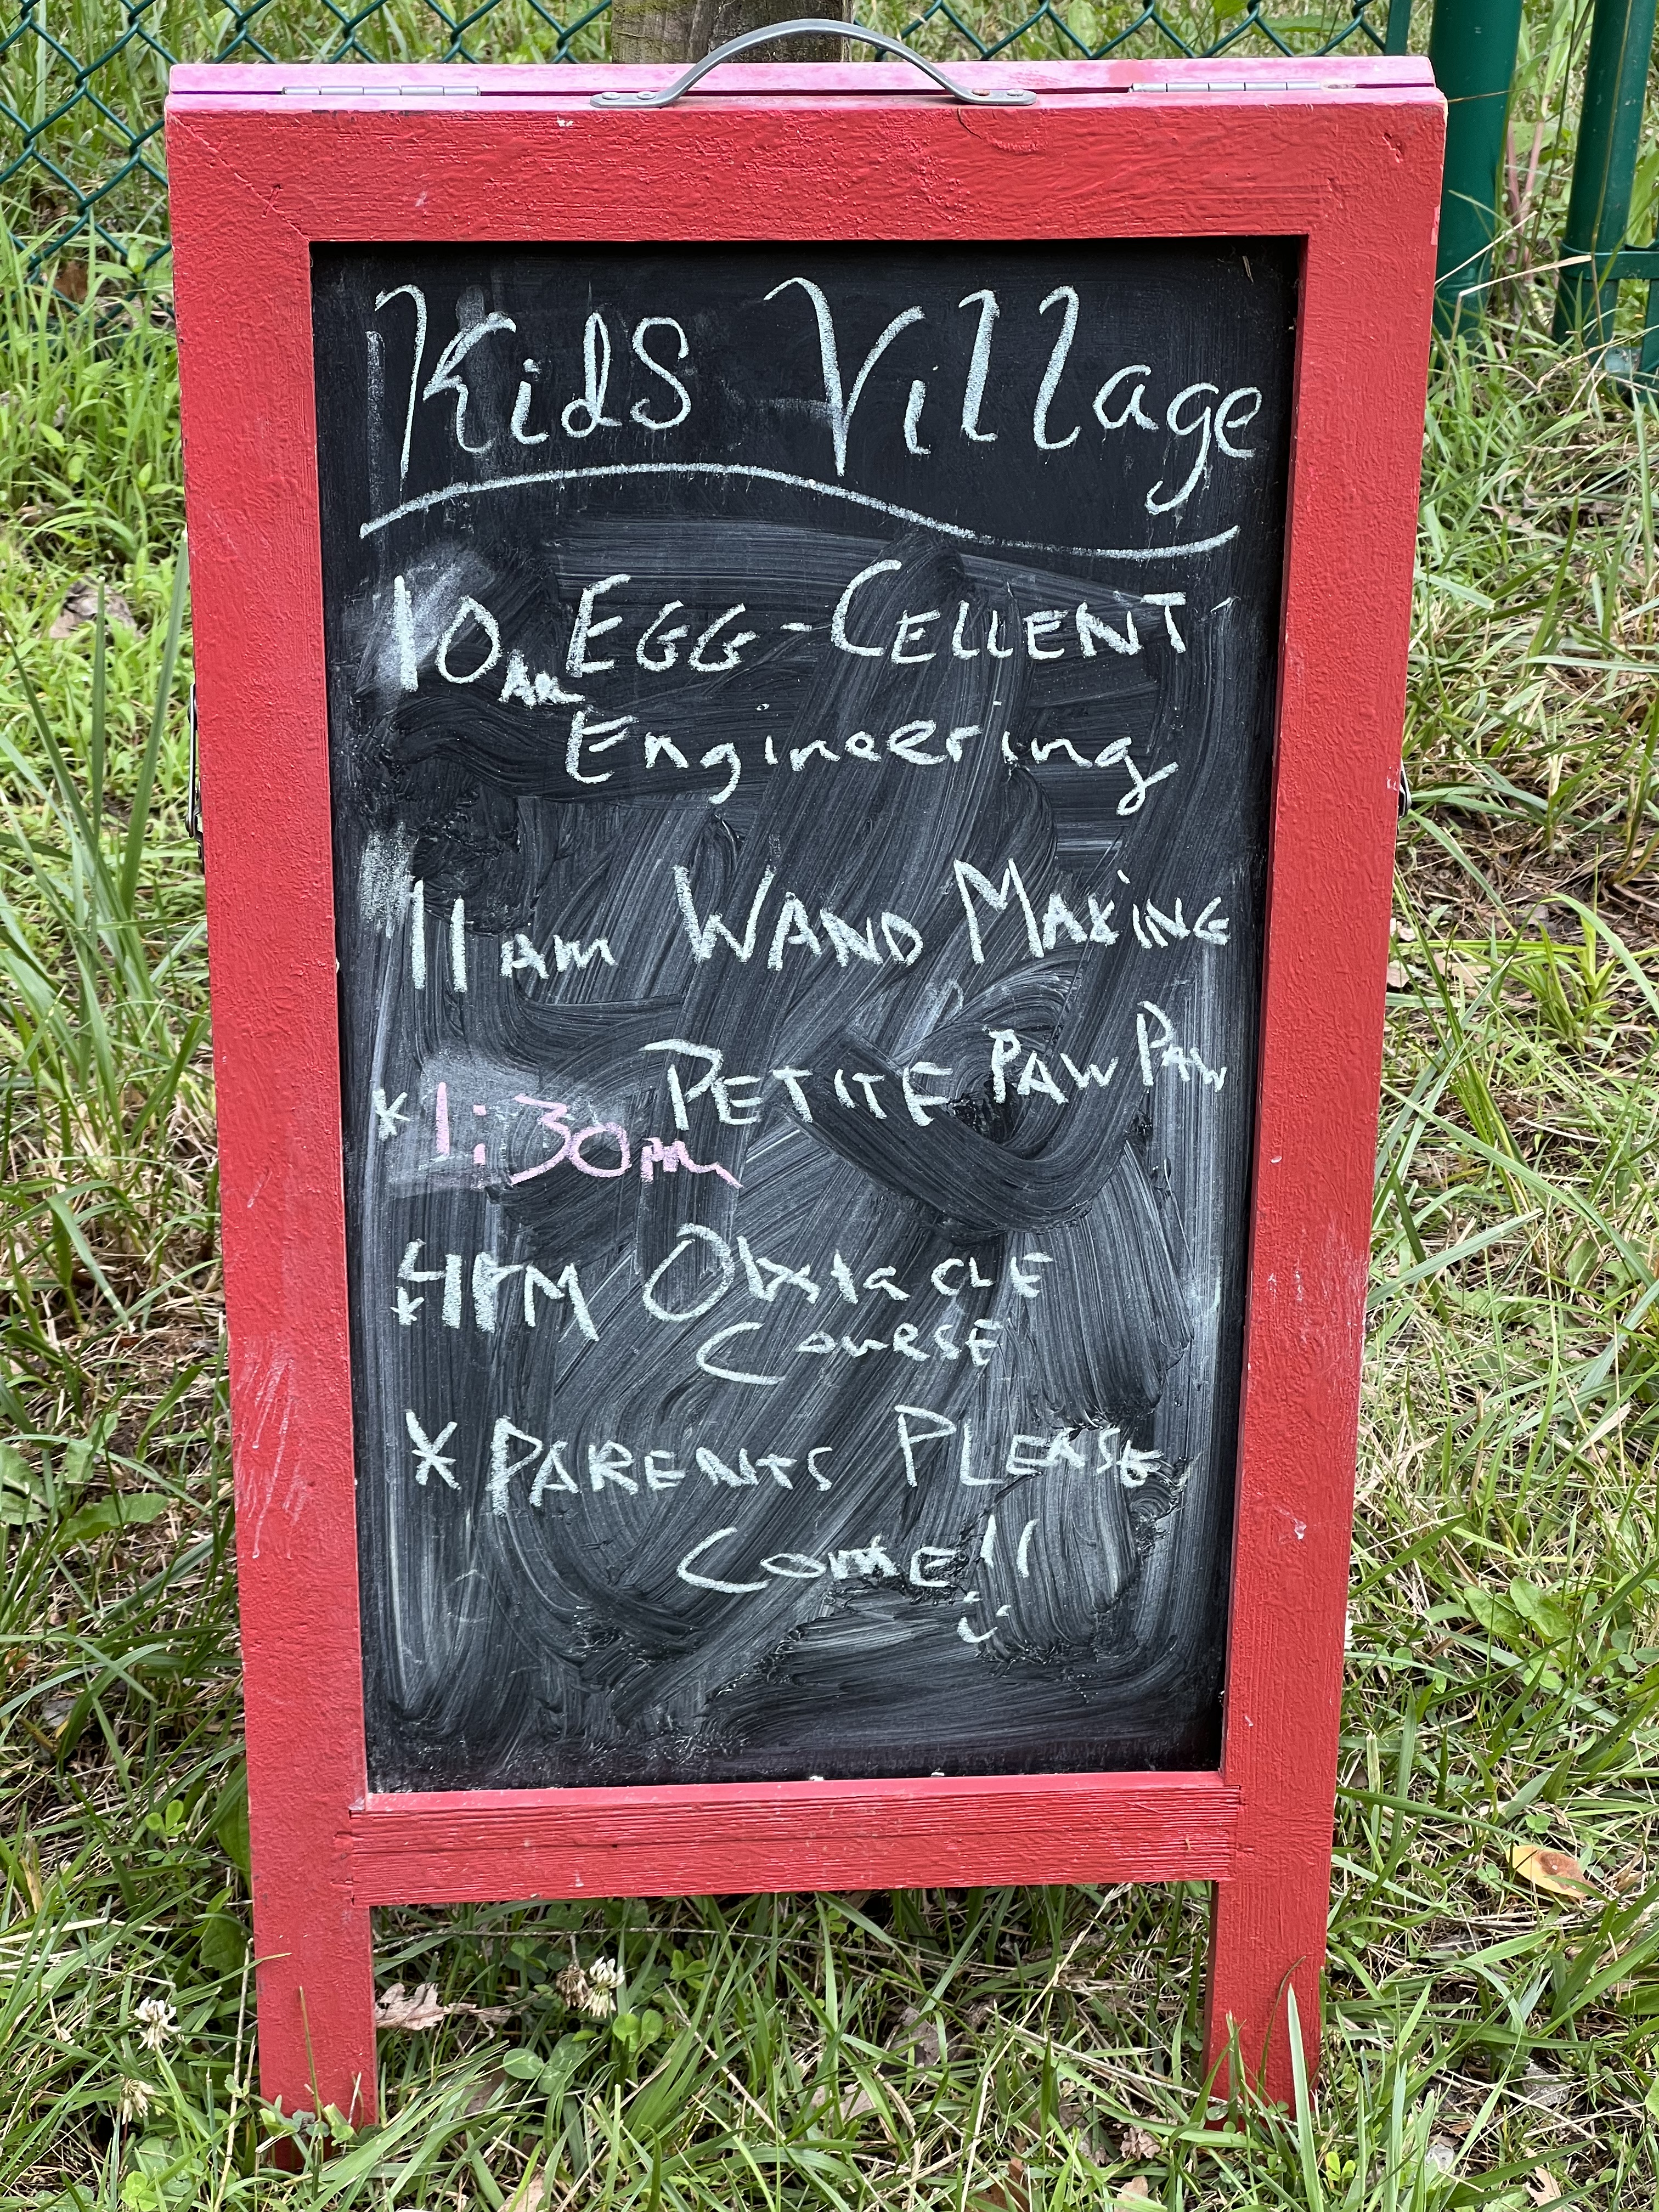 Kids Village
10AM EGG-CELLENT
Engineering
11 AM WAND MAKING
* 1:30pm PETITE PAW PAW
* 4PM ObstaCLE
COURSE
* PARENTS PLEASE
COME!!